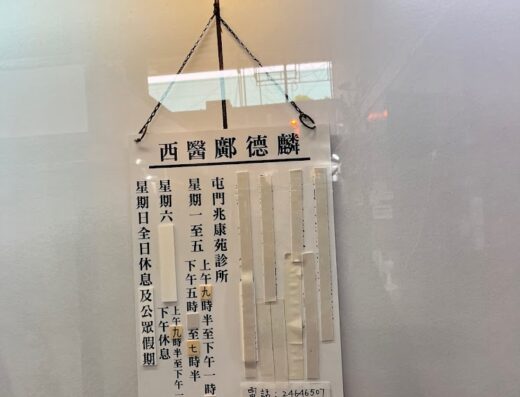 西醫鄺德麟
屯門兆康苑診所
星期一至五
上午九時半至下午一時
下午五時 至七時半
星期六
上午九時半至下午一
下午休息
星期日全日休息及公眾假期
電話:24646507